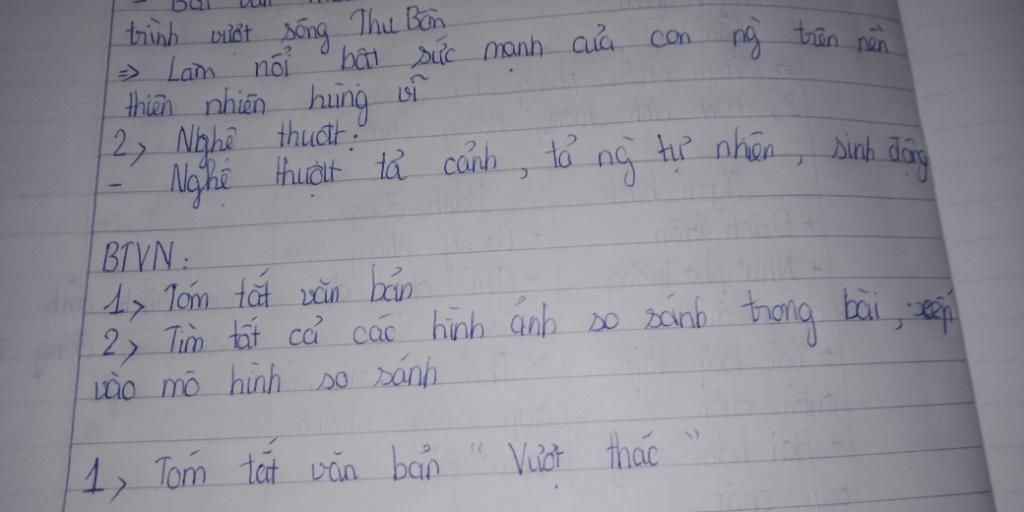 trình vượt sông Thu Bồn
=> Làm nổi bật sức mạnh của con ng trên nền
thiên nhiên hùng vĩ
2, Nghệ thuật:
- Nghệ thuật tả cảnh, tả ng tự nhiên, sinh động
BTVN:
1, Tóm tắt văn bản
2, Tìm tất cả các hình ảnh so sánh trong bài, xếp
vào mô hình so sánh
1, Tóm tắt văn bản " Vượt thác "